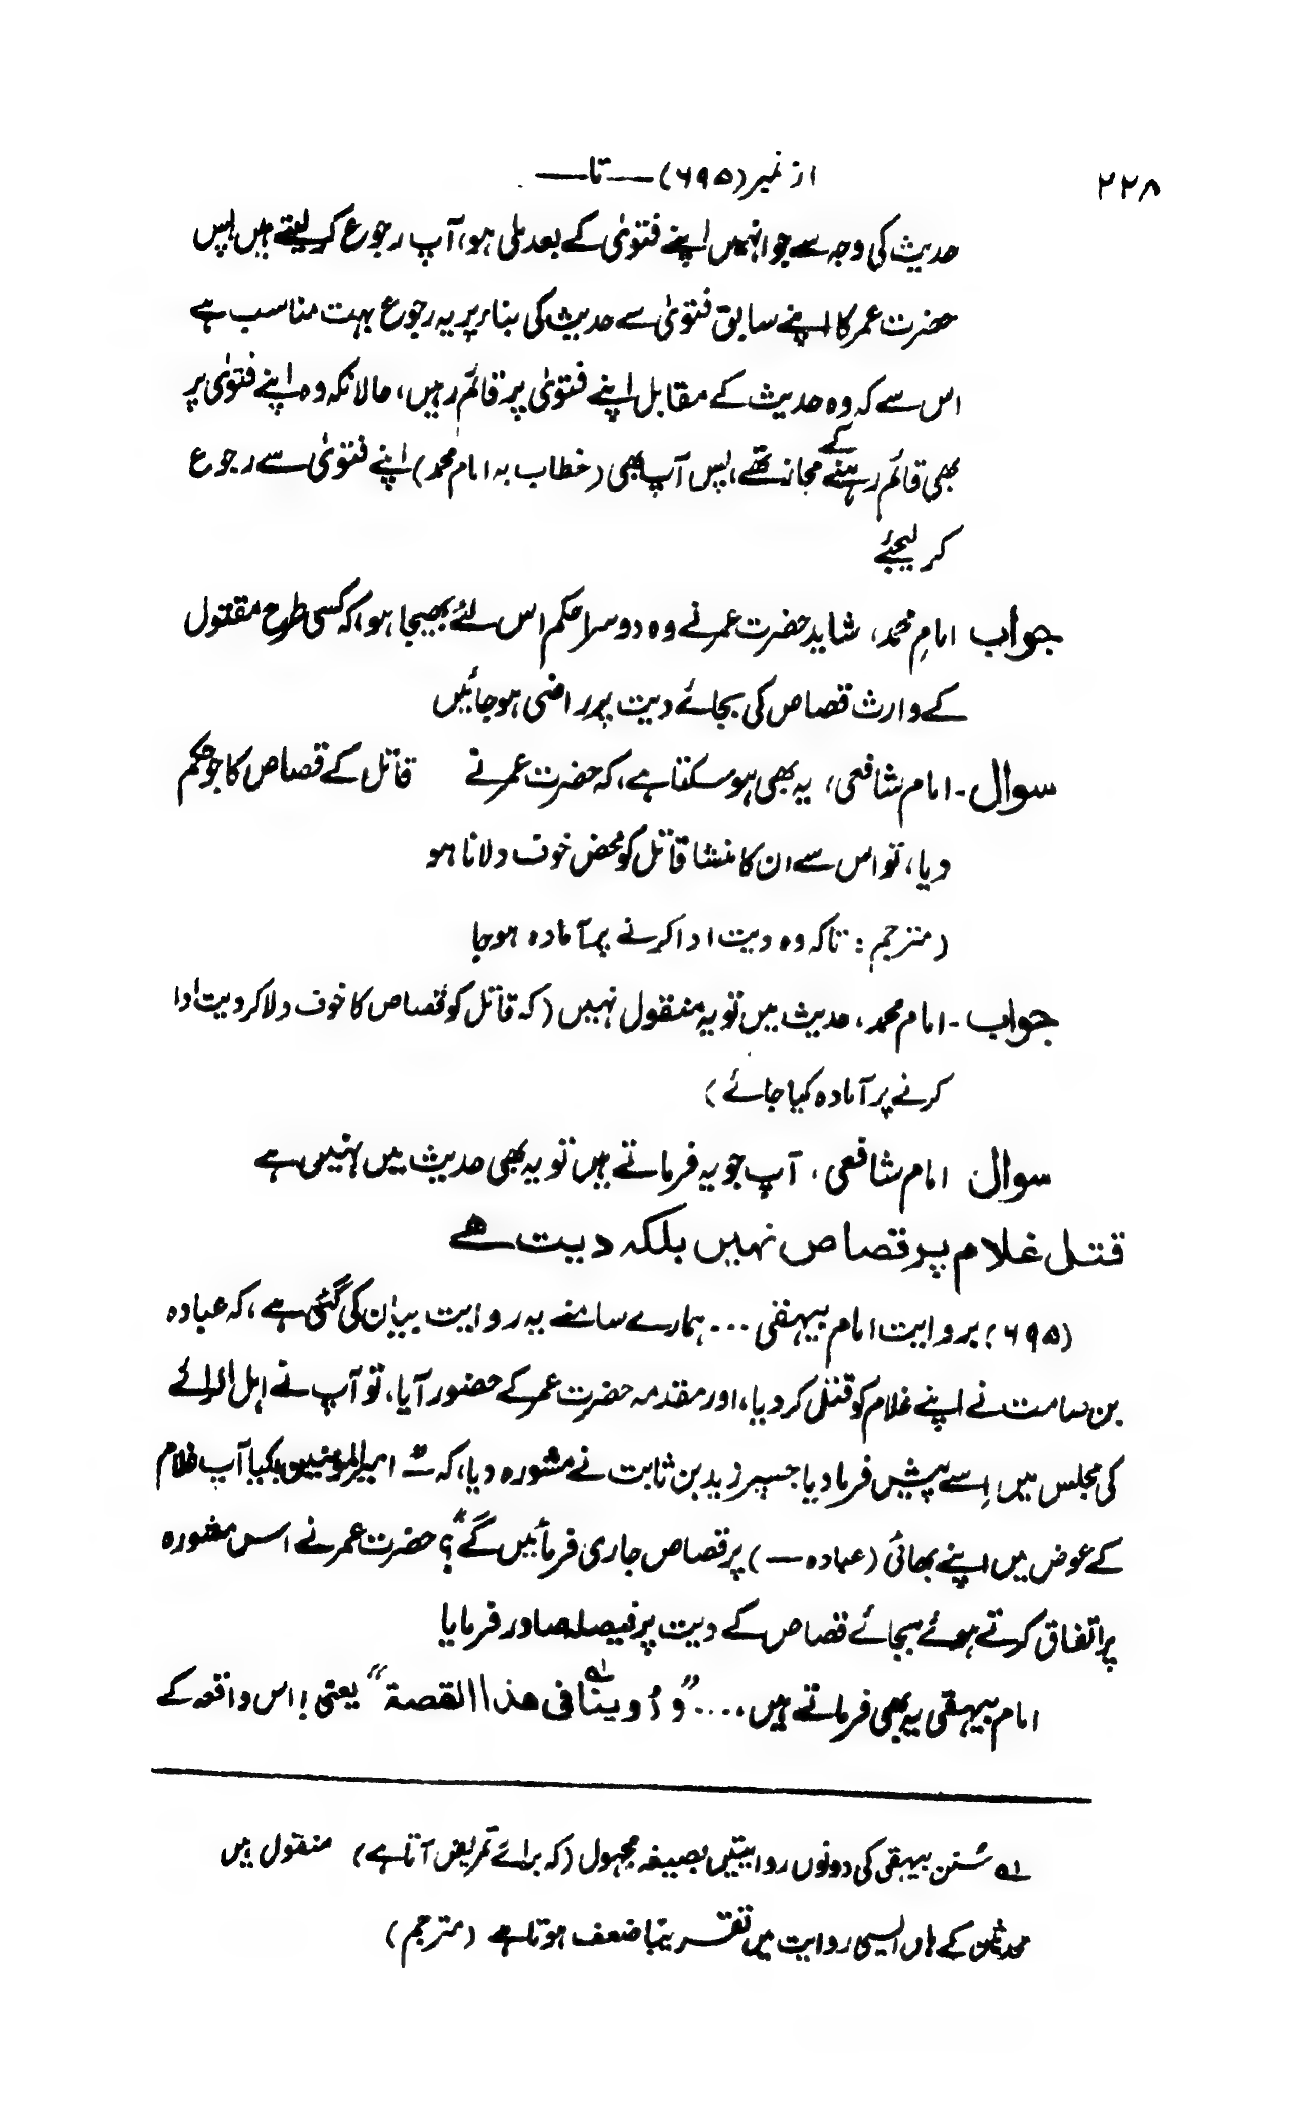 ۲۲۸
از نمبر (۶۹۵) — تا —
حدیث کی وجہ سے جو انہیں اپنے فتویٰ کے بعد ملی ہو، آپ رجوع کر لیتے ہیں پس
حضرت عمر کا اپنے سابق فتویٰ سے حدیث کی بناء پر یہ رجوع بہت مناسب ہے
اس سے کہ وہ حدیث کے مقابل اپنے فتویٰ پر قائم رہیں، حالانکہ وہ اپنے فتویٰ پر
بھی قائم رہنے کے مجاز تھے، پس آپ بھی (خطاب بہ امام محمد) اپنے فتویٰ سے رجوع
کر لیجئے
جواب امامِ محمد، شاید حضرت عمر نے وہ دوسرا حکم اس لئے بھیجا ہو، کہ کسی طرح مقتول
کے وارث قصاص کی بجائے دیت پر راضی ہو جائیں
سوال۔ امام شافعی، یہ بھی ہو سکتا ہے، کہ حضرت عمر نے قاتل کے قصاص کا جو حکم
دیا، تو اس سے ان کا منشا قاتل کو محض خوف دلانا ہو
(مترجم: تاکہ وہ دیت ادا کرنے پر آمادہ ہو جا
جواب۔ امام محمد، حدیث میں تو یہ منقول نہیں (کہ قاتل کو قصاص کا خوف دلا کر دیت ادا
کرنے پر آمادہ کیا جائے)
سوال امام شافعی، آپ جو یہ فرماتے ہیں تو یہ بھی حدیث میں نہیں ہے
قتل غلام پر قصاص نہیں بلکہ دیت ہے
(۶۹۵) بروایت امام بیہقی ... ہمارے سامنے یہ روایت بیان کی گئی ہے، کہ عبادہ
بن صامت نے اپنے غلام کو قتل کر دیا، اور مقدمہ حضرت عمر کے حضور آیا، تو آپ نے اہل الرائے
کی مجلس میں اسے پیش فرما دیا جسپر زید بن ثابت نے مشورہ دیا، کہ اے امیر المومنین! کیا آپ غلام
کے عوض میں اپنے بھائی (عبادہ —) پر قصاص جاری فرمائیں گے"؟ حضرت عمر نے اس مشورہ
پر اتفاق کرتے ہوئے بجائے قصاص کے دیت پر فیصلہ صادر فرمایا
امام بیہقی یہ بھی فرماتے ہیں، .... "و رُوینا فی ھذا القصة" یعنی! اس واقعہ کے
لہ سُنن بیہقی کی دونوں روایتیں بصیغہ مجہول (کہ برائے تمریض آتا ہے) منقول ہیں
محدثین کے ہاں ایسی روایت میں تقریباً ضعف ہوتا ہے (مترجم)